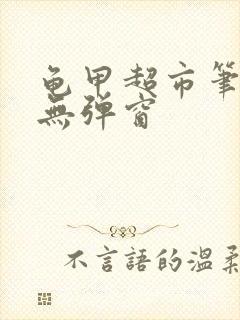 龟甲超市筆
無弹窗
不言語的温柔